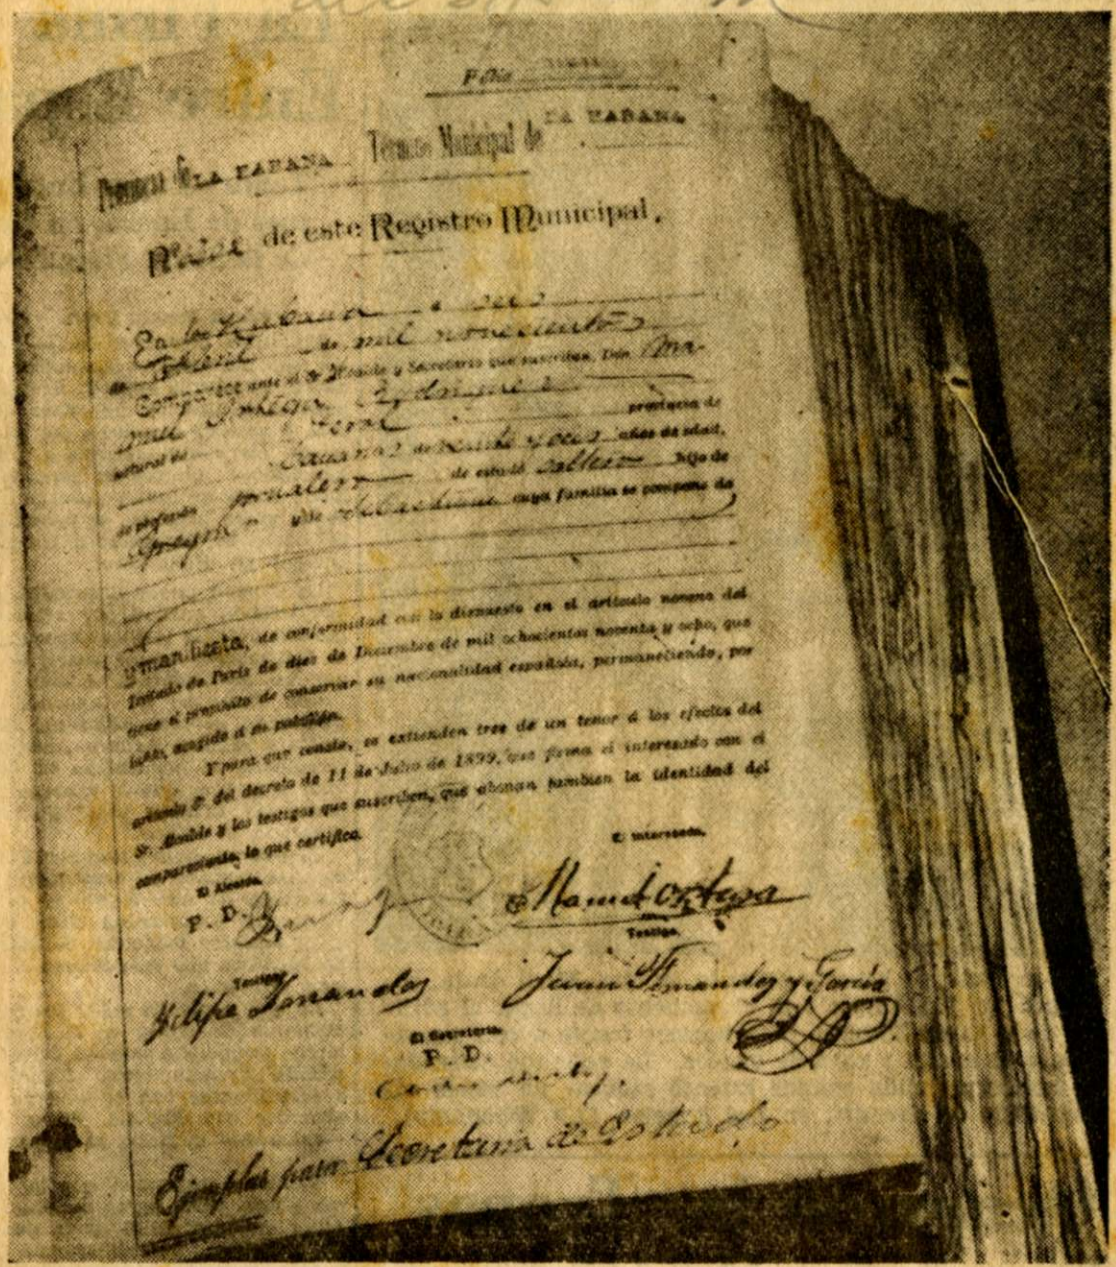 Folio
Provincia de LA HABANA Término Municipal de LA HABANA
de este Registro Municipal.
En la Habana a seis
de Abril de mil novecientos
Comparece ante el Sr. Alcalde y Secretario que suscriben, Don Ma-
nuel Ortega
natural de provincia de
de años de edad,
de profesión jornalero de estado soltero hijo de
y de Sebastiana cuya familia se compone de
y manifiesta, de conformidad con lo dispuesto en el artículo noveno del
Tratado de París de diez de Diciembre de mil ochocientos noventa y ocho, que
tiene el propósito de conservar su nacionalidad española, permaneciendo, por
tanto, acogido á su pabellón.
Y para que conste, se extienden tres de un tenor á los efectos del
artículo del decreto de 11 de Julio de 1899, que firma el interesado con el
Sr. Alcalde y los testigos que suscriben, que abonan tambien la identidad del
compareciente, lo que certifico.
El Alcalde, El interesado,
P. D. Manuel Ortega
Testigo, Testigo,
Felipe Fernandez Juan Fernandez y García
El Secretario,
P. D.
Ejemplar para Secretaria de Estado